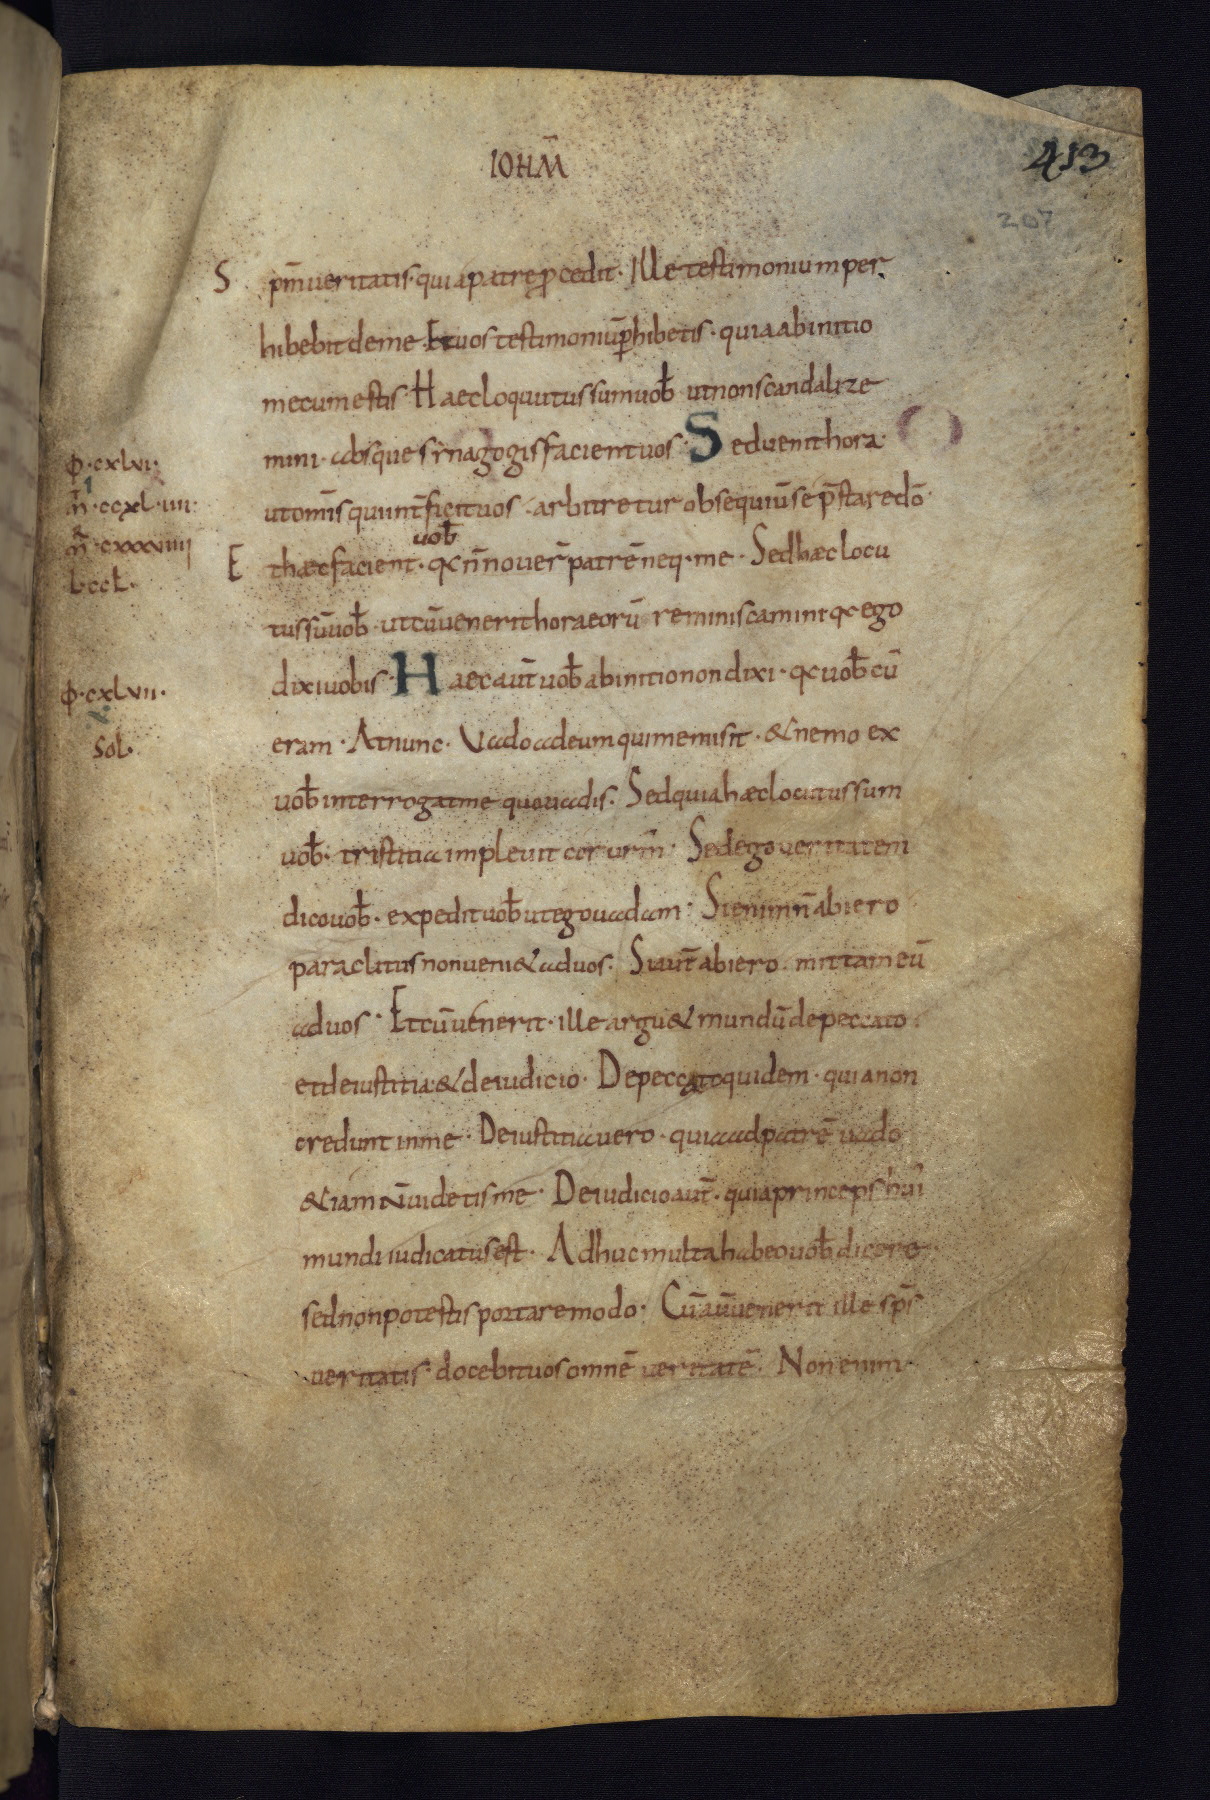 IOHM̄
413
207
Sp̄m ueritatis · qui a patre ꝓcedit · Ille testimonium per
hibebit de me · Et uos testimoniū ꝑhibetis · quia ab initio
mecum estis · Haec loquutus sum uob̄ ut non scandalize
mini · absque synagogis facient uos · Sed uenit hora
ut om̄is qui int̄ficit uos · arbitretur obsequiū se p̄stare dō ·
Et haec facient · uob̄ qc n̄ nouer̄ patrē neq · me · Sed haec locu
tus sū uob̄ · ut cū uenerit hora eorū reminiscamini qc ego
dixi uobis · Haec aut̄ uob̄ ab initio non dixi · qc uob̄ cū
eram · At nunc · Uado ad eum qui me misit · & nemo ex
uob̄ interrogat me quo uadis · Sed quia haec locutus sum
uob̄ · tristitia impleuit cor ur̄m · Sed ego ueritatem
dico uob̄ · expedit uob̄ ut ego uadam · Si enim n̄ abiero
paraclitus non ueni& ad uos · Si aut̄ abiero · mittam eū
ad uos · Et cū uenerit · ille argu& mundū de peccato ·
et de iustitia & de iudicio · De peccato quidem · quia non
credunt in me · De iustitia uero · quia ad patrē uado
& iam n̄ uidetis me · De iudicio aut̄ · quia princeps huī
mundi iudicatus est · Adhuc multa habeo uob̄ dicere
sed non potestis portare modo · Cū aut̄ uenerit ille sp̄s
ueritatis · docebit uos omnē ueritatē · Non enim
Φ · cxlvi ·
1
m̄ · ccxl · iiii ·
m̄R · cxxxviiii
L · ccl ·
Φ · cxlvii ·
x
Sol ·